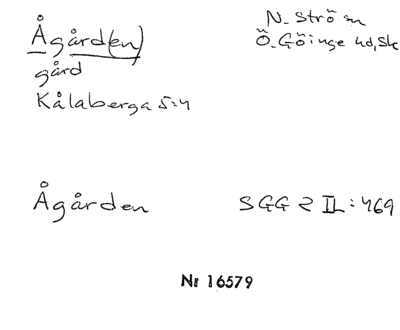 Ågård(en)
N. Ström
Ö. Göinge hd, Sk
gård
Kålaberga 5:4
Ågården
SGG 2 II:469
Nr 16579